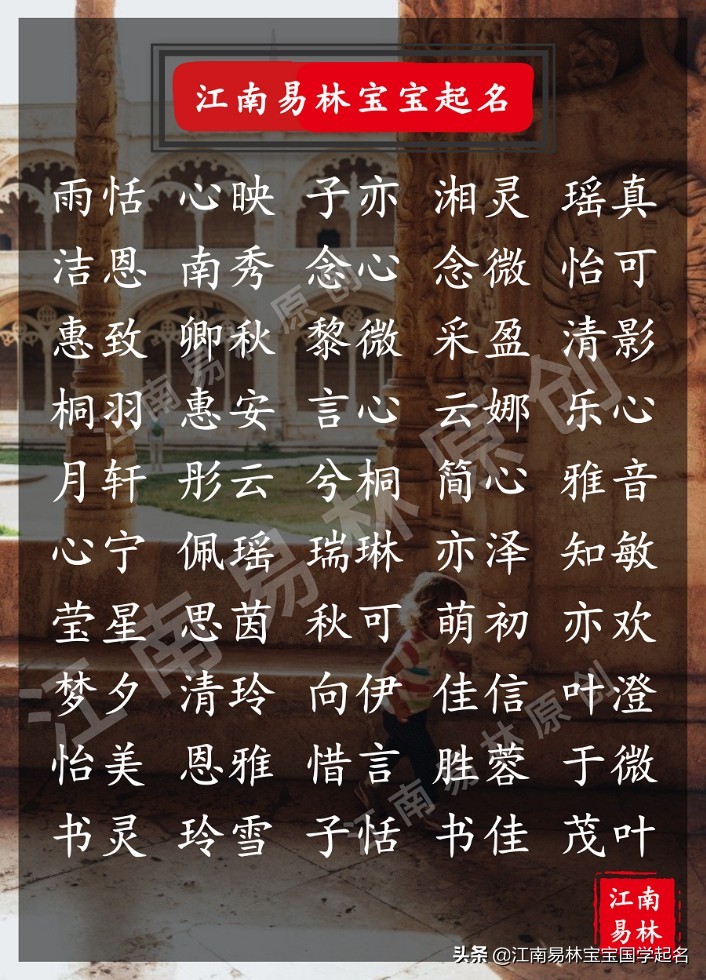 江南易林宝宝起名
雨恬 心映 子亦 湘灵 瑶真
洁恩 南秀 念心 念微 怡可
惠致 卿秋 黎微 采盈 清影
桐羽 惠安 言心 云娜 乐心
月轩 彤云 兮桐 简心 雅音
心宁 佩瑶 瑞琳 亦泽 知敏
莹星 思茵 秋可 萌初 亦欢
梦夕 清玲 向伊 佳信 叶澄
怡美 恩雅 惜言 胜蓉 于微
书灵 玲雪 子恬 书佳 茂叶
江南易林原创
江南易林原创
江南易林原创
江南
易林
头条 @江南易林宝宝国学起名